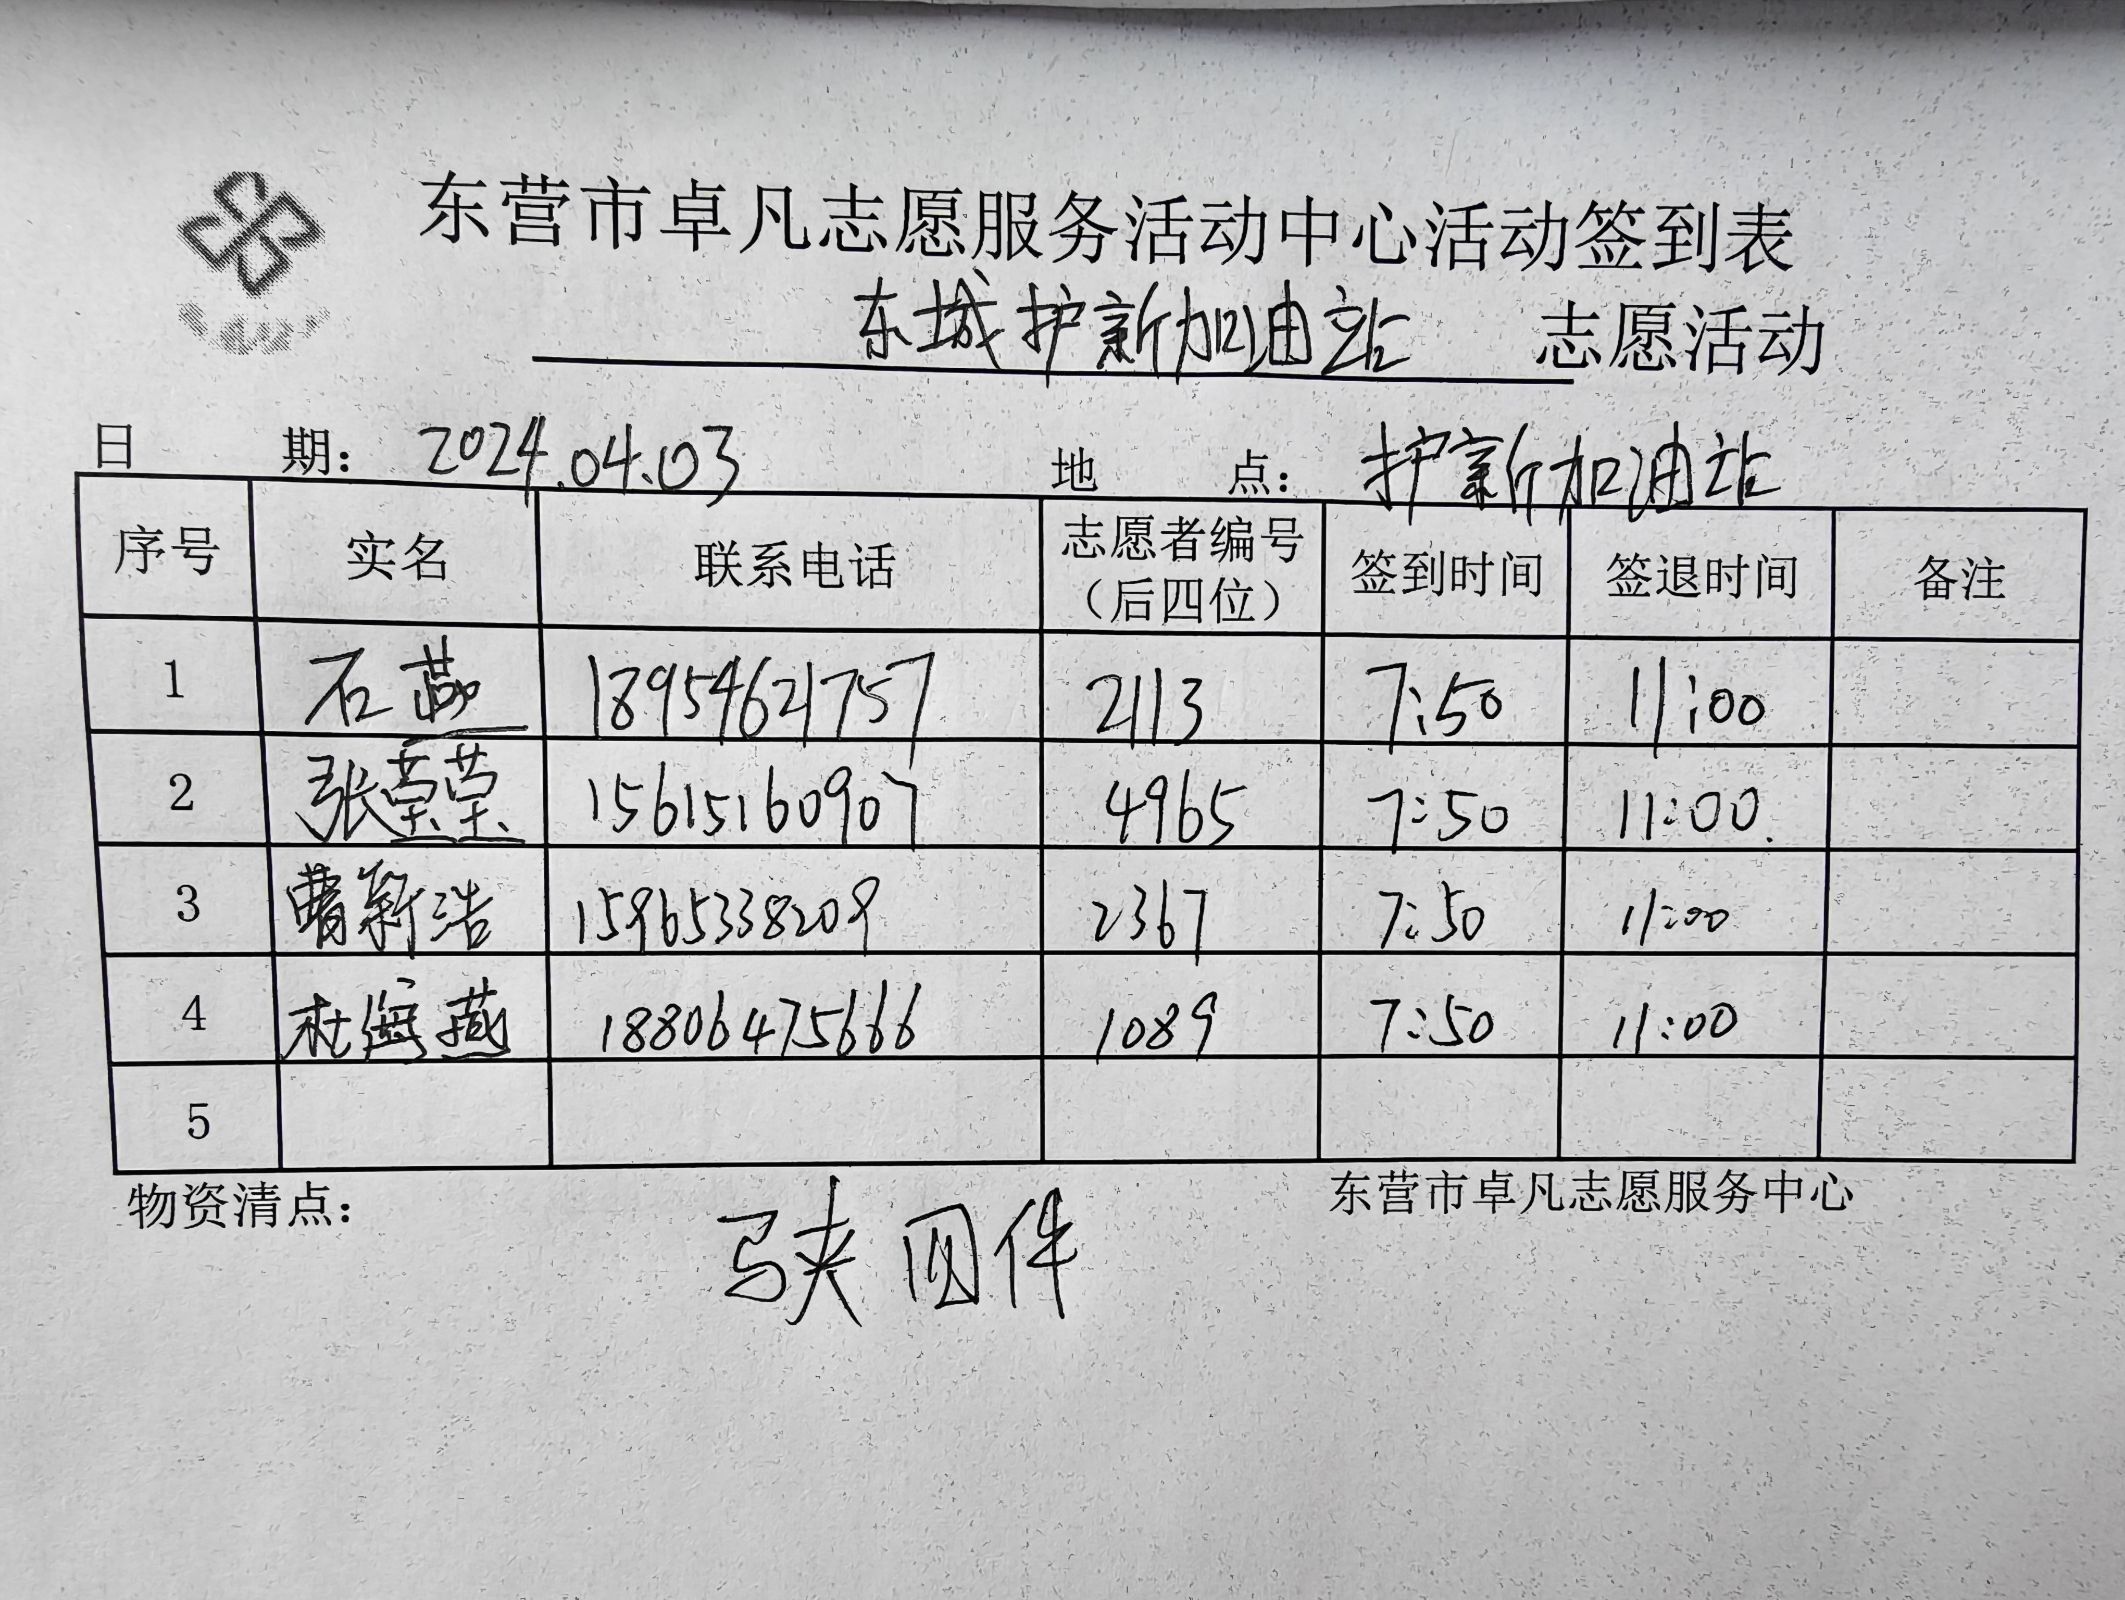 东营市卓凡志愿服务活动中心活动签到表
东城护新加油站 志愿活动
日 期： 2024.04.03 地 点： 护新加油站
序号 实名 联系电话 志愿者编号（后四位） 签到时间 签退时间 备注
1 石燕 18954621757 2113 7:50 11:00
2 张莹莹 15615160907 4965 7:50 11:00.
3 曹新浩 15965338209 2367 7:50 11:00
4 杜海燕 18806475666 1089 7:50 11:00
5
物资清点： 东营市卓凡志愿服务中心
马夹四件